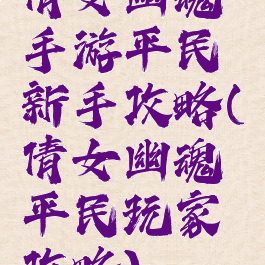 倩女幽魂
手游平民
新手攻略(
倩女幽魂
平民玩家
攻略)